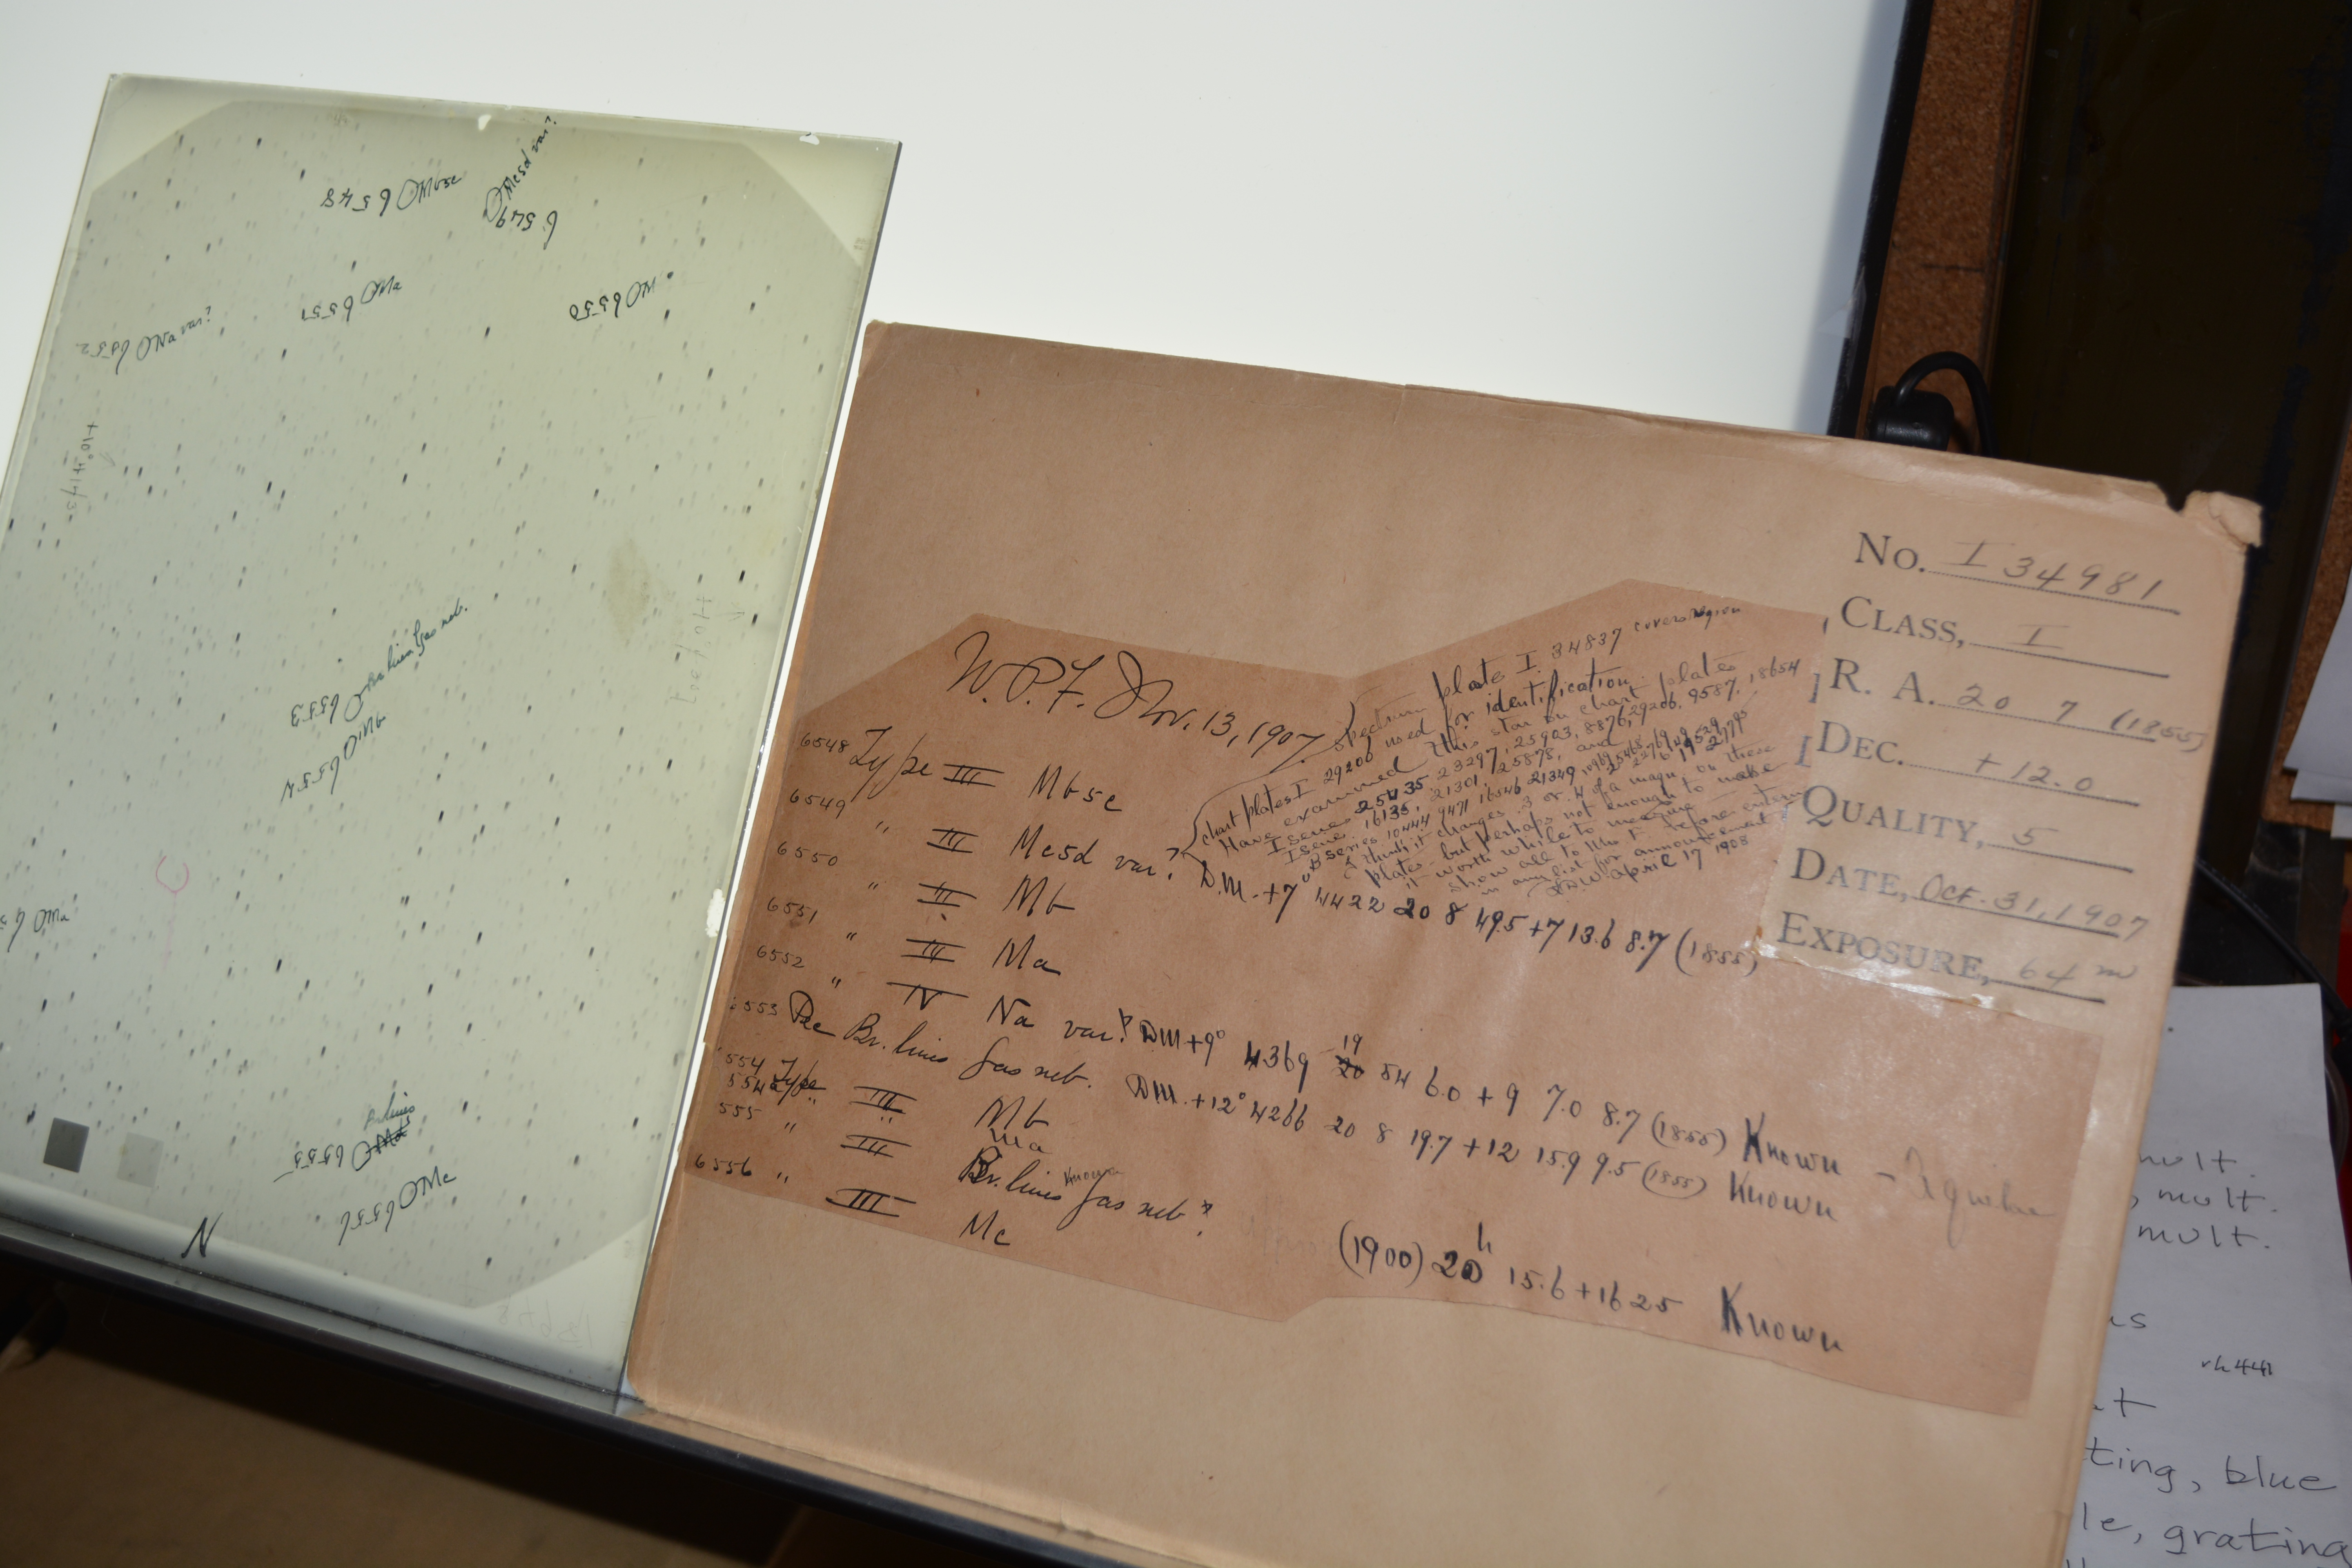 6548 Mb5c
6549 Mc5d var?
6550 M
6551 Ma
6552 Na var?
6553 Br. lines gas neb.
6554 Mb
Ma
Br. lines
6555 Md
6556 Mc
N
No. I 34981
CLASS, I
R. A. 20 7 (1855)
DEC. +12.0
QUALITY, 5
DATE, Oct. 31, 1907
EXPOSURE, 64 m
W.P.F. Nov. 13, 1907
Spectrum plate I 34837 covers region
chart plates I 29206 used for identification.
Have examined this star on chart plates
I series 25435, 23297, 25903, 8876, 29206, 9587, 18654
I series 16135, 21301, 25878, and
B series 10444 9471 16546 21349
I think it changes .3 or .4 of a magn. on these
plates - but perhaps not enough to make
it worth while to measure
Show all to Mrs F before entering
in any list for announcement
April 17 1908
6548 Type III Mb5c
6549 " III Mc5d var? D.M. +7° 4422 20 8 49.5 +7 13.6 8.7 (1855)
6550 " III Mb
6551 " III Ma
6552 " IV Na var? DM +9° 4369 19 20 54 6.0 + 9 7.0 8.7 (1855) Known
6553 Pec Br. lines gas neb. DM. +12° 4266 20 8 19.7 +12 15.9 9.5 (1855) Known
554 Type III Mb
554a " " Ma
555 " III Br. lines Known gas neb?
6556 " III Mc (1900) 20h 15.6 +16 25 Known
mult.
mult.
mult.
at
ting, blue
le, grating